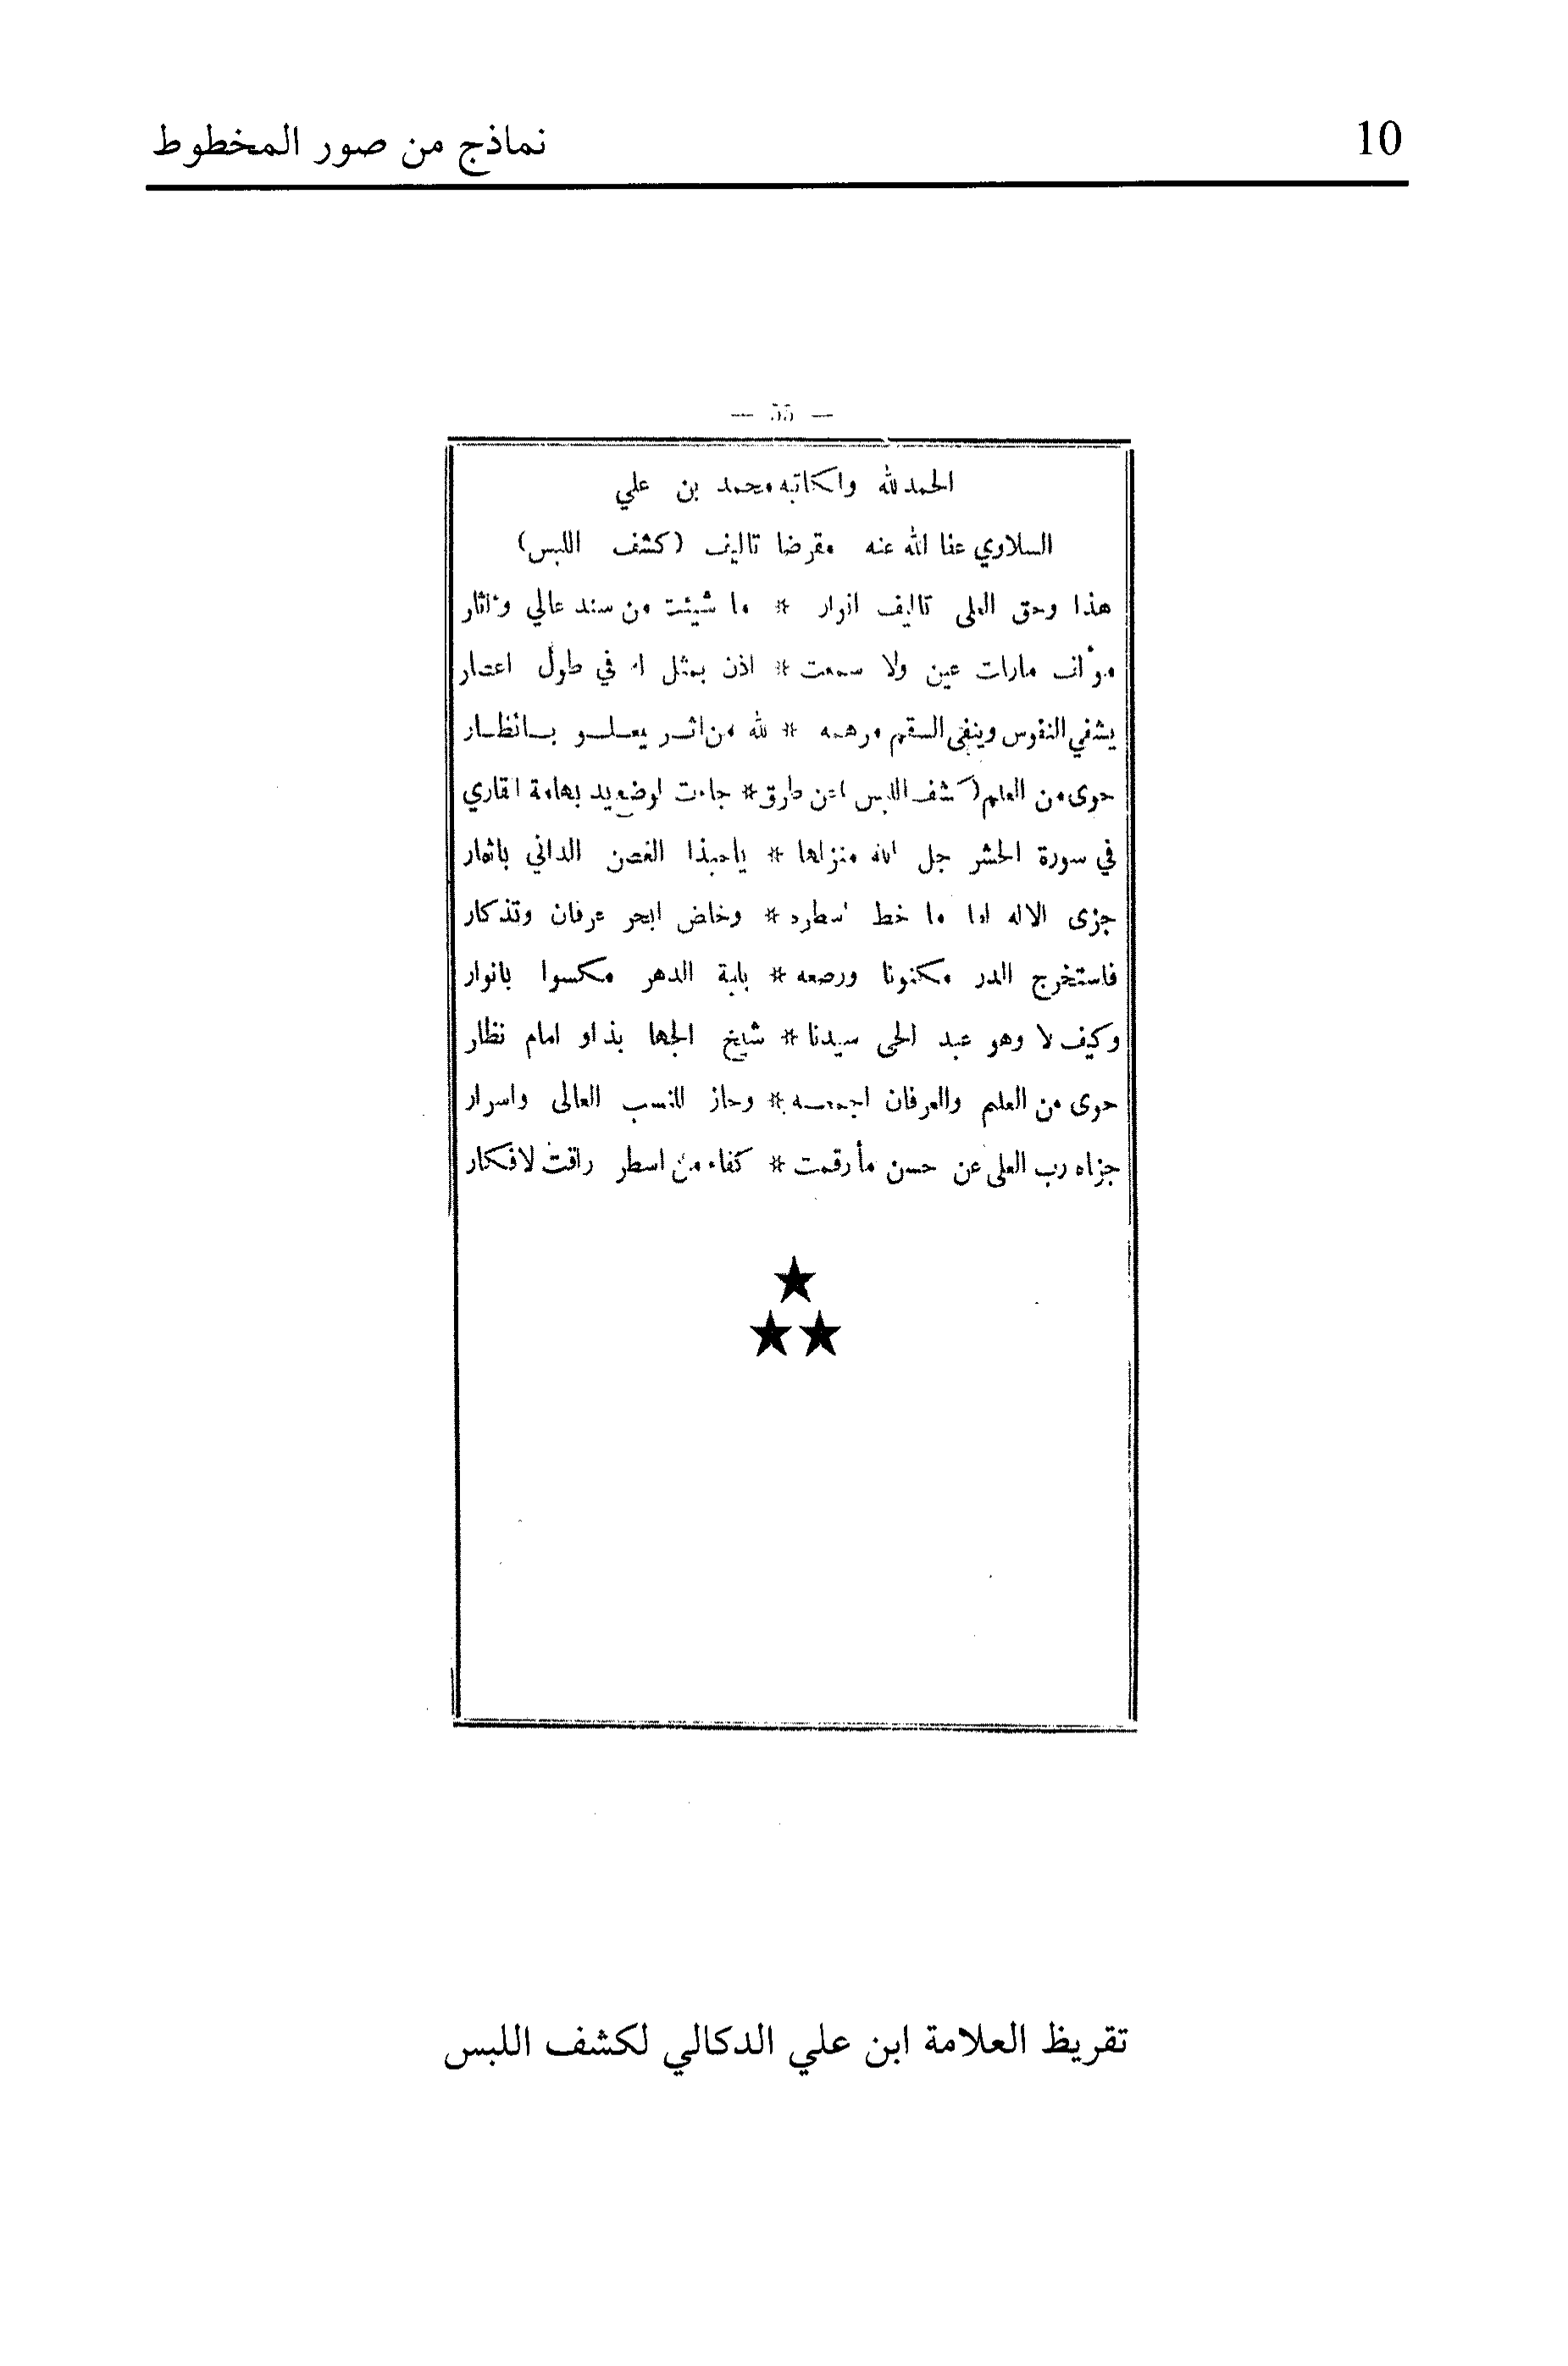 10
نماذج من صور المخطوط
— 55 —
الحمد لله ولكاتبه محمد بن علي
السلاوي عفا الله عنه مقرضا تاليف (كشف اللبس)
هذا وحق العلى تاليف انوار * ما شيئت من سند عالي وءاثار
مؤلف مارات عين ولا سمعت * اذن بمثل له في طول اعصار
يشفي النفوس وينفى السقم مرهمه * لله من اثر يعلو بانظار
حوى من العلم (كشف اللبس) عن طرق * جاءت لوضع يد بهامة القاري
في سورة الحشر جل الله منزلها * ياحبذا الغصن الداني باثمار
جزى الاله لما ما خط اسطره * وخاض ابحر عرفان وتذكار
فاستخرج الدر مكنونا ورصعه * بلبة الدهر مكسوا بانوار
وكيف لا وهو عبد الحى سيدنا * شيخ الجها بذ او امام نظار
حوى من العلم والعرفان اجمعه * وحاز للنسب العالى واسرار
جزاه رب العلى عن حسن ما رقمت * كفاه من اسطر راقت لافكار
تقريظ العلامة ابن علي الدكالي لكشف اللبس